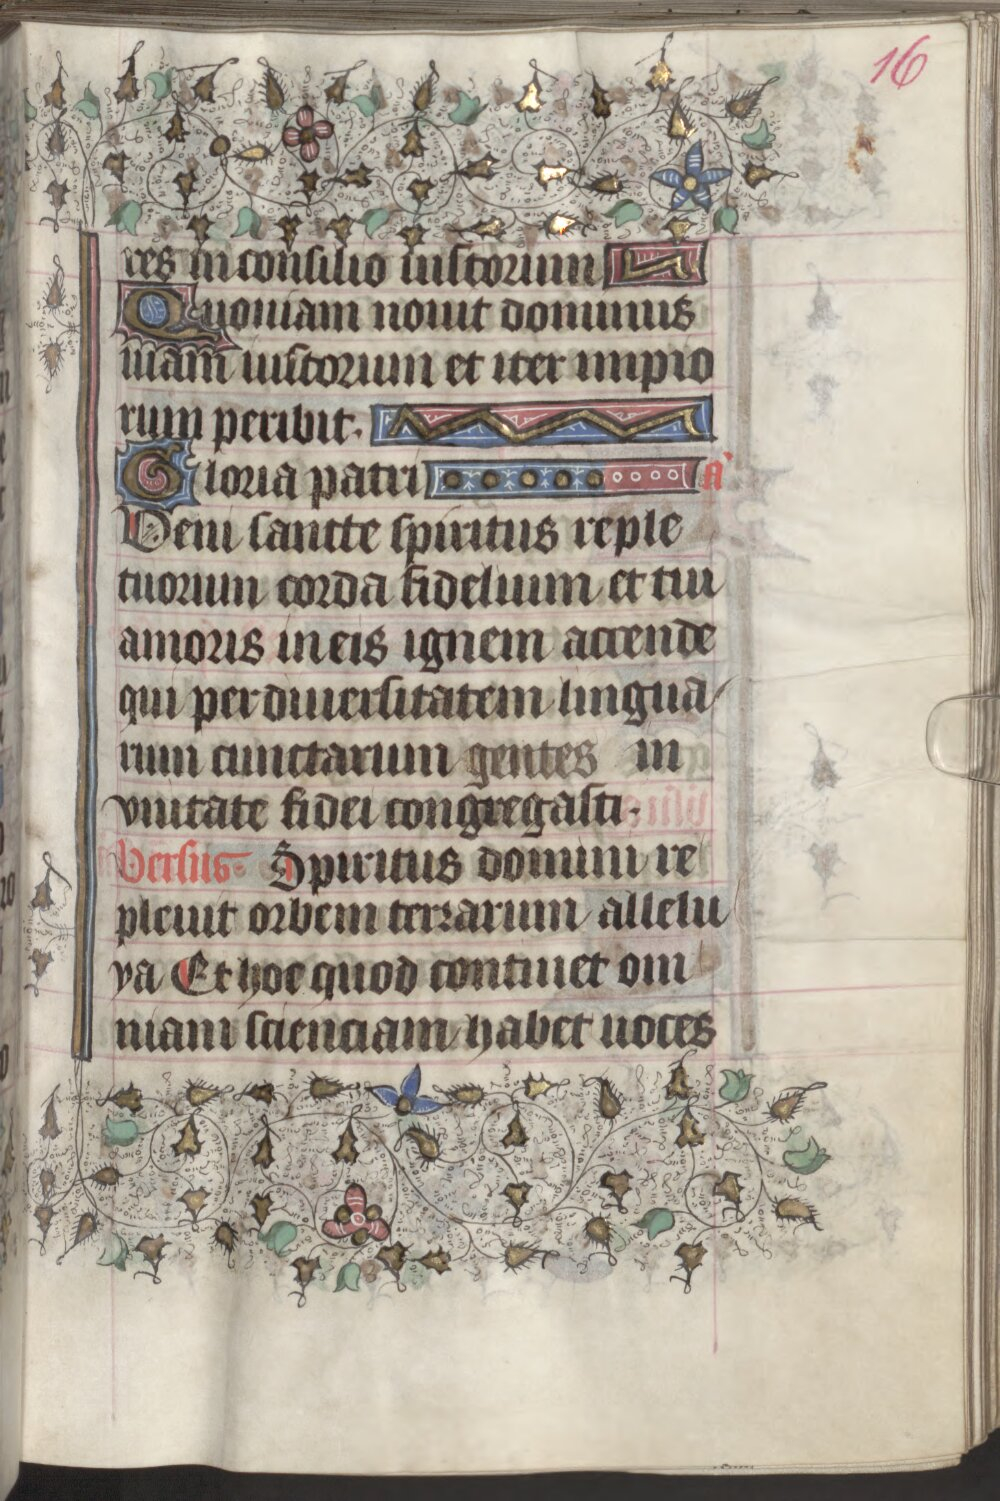 16
res in consilio iustorum
Quoniam nouit dominus
uiam iustorum et iter impio
rum peribit.
Gloria patri a
Veni sancte spiritus reple
tuorum corda fidelium et tui
amoris in eis ignem accende
qui per diuersitatem lingua
rum cunctarum gentes in
vnitate fidei congregasti.
Versus. Spiritus domini re
pleuit orbem terrarum allelu
ya Et hoc quod continet om
niam scienciam habet uoces